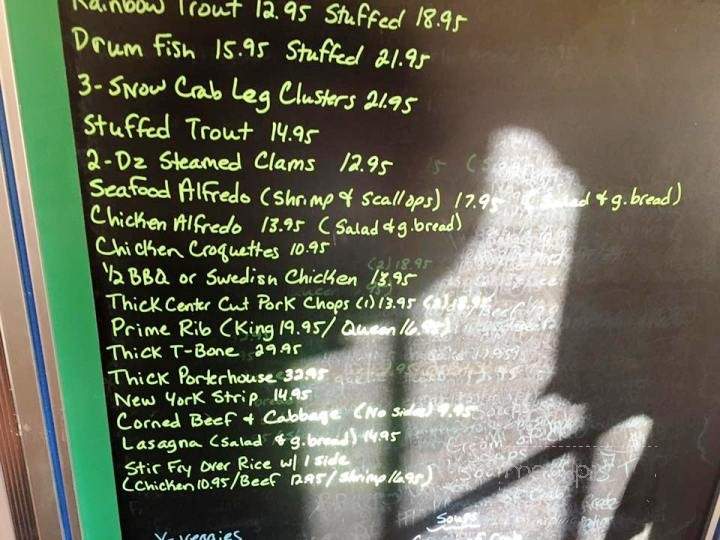 Rainbow Trout 12.95 Stuffed 18.95
Drum Fish 15.95 Stuffed 21.95
3-Snow Crab Leg Clusters 21.95
Stuffed Trout 14.95
2-Dz Steamed Clams 12.95
Seafood Alfredo (Shrimp & Scallops) 17.95 (Salad & g.bread)
Chicken Alfredo 13.95 (Salad & g.bread)
Chicken Croquettes 10.95
1/2 BBQ or Swedish Chicken 13.95
Thick Center Cut Pork Chops (1) 13.95 (2) 18.95
Prime Rib (King 19.95/ Queen 16.95)
Thick T-Bone 29.95
Thick Porterhouse 32.95
New York Strip 14.95
Corned Beef & Cabbage (No Sides) 9.95
Lasagna (Salad & g.bread) 14.95
Stir Fry Over Rice w/ 1 side
(Chicken 10.95/Beef 12.95/Shrimp 16.95)
Soups